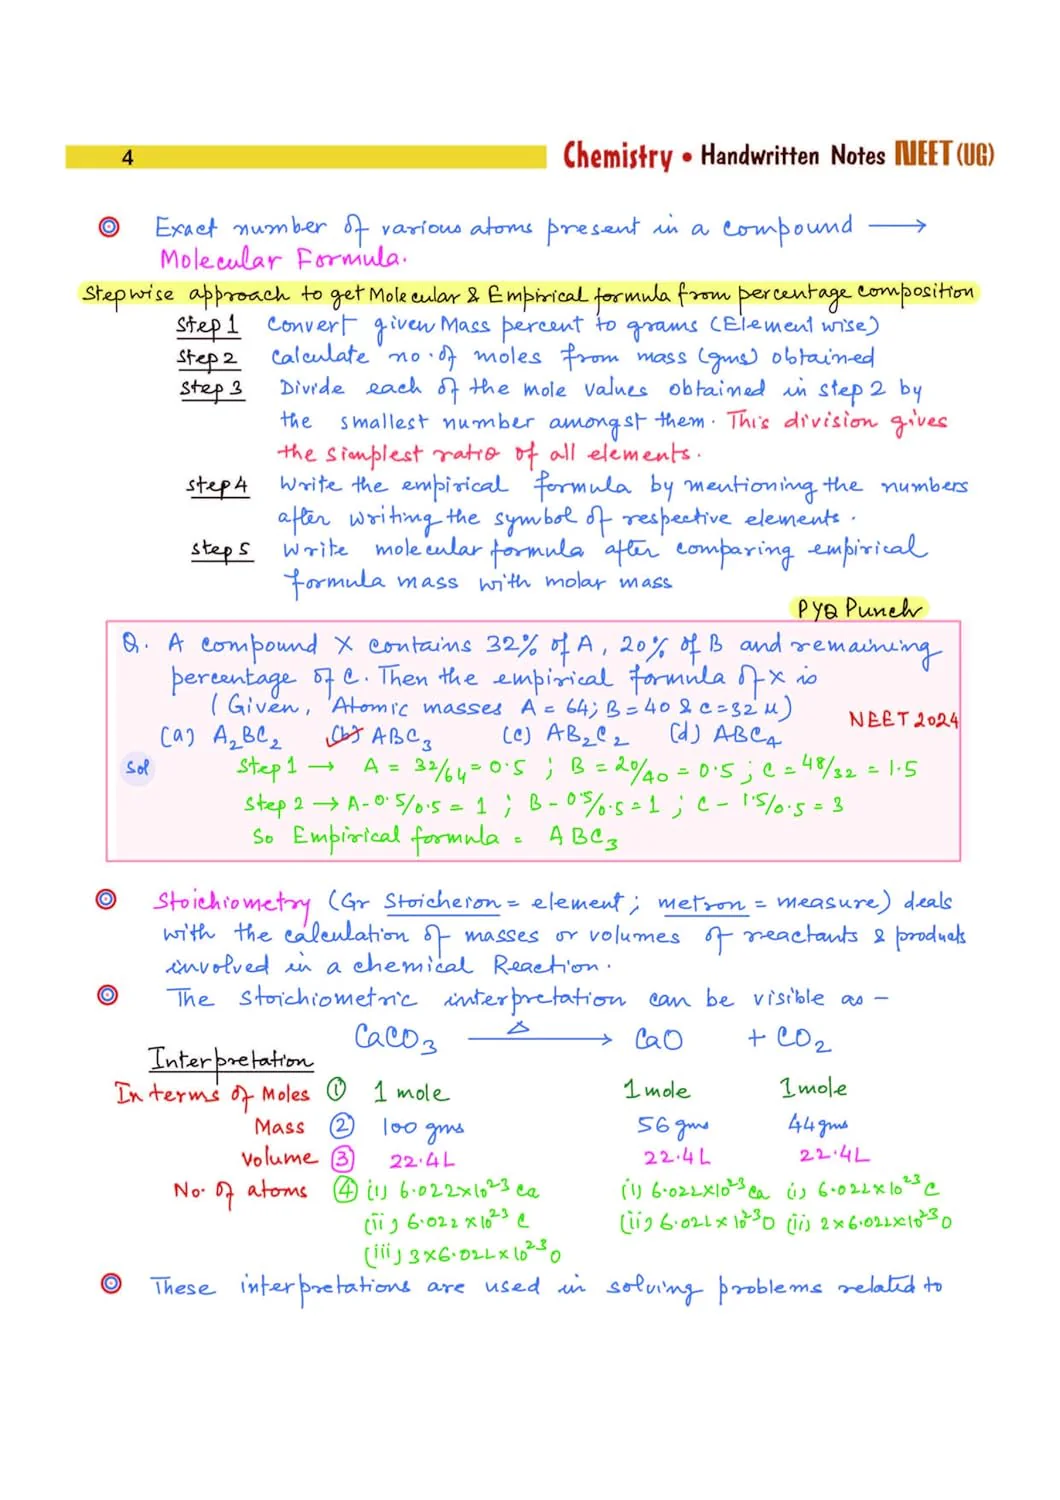 4
Chemistry • Handwritten Notes NEET (UG)
Exact number of various atoms present in a compound ⟶
Molecular Formula.
Stepwise approach to get Molecular & Empirical formula from percentage composition
Step 1 Convert given Mass percent to grams (Element wise)
Step 2 Calculate no. of moles from mass (gms) obtained
Step 3 Divide each of the mole values obtained in step 2 by
the smallest number amongst them. This division gives
the simplest ratio of all elements.
Step 4 Write the empirical formula by mentioning the numbers
after writing the symbol of respective elements.
Step 5 Write molecular formula after comparing empirical
formula mass with molar mass
PYQ Punch
Q. A compound X contains 32% of A, 20% of B and remaining
percentage of C. Then the empirical formula of X is
(Given, Atomic masses A = 64; B = 40 & C = 32 u)
NEET 2024
(a) A₂BC₂ (b) ABC₃ (c) AB₂C₂ (d) ABC₄
Sol Step 1 ⟶ A = 32/64 = 0.5 ; B = 20/40 = 0.5 ; C = 48/32 = 1.5
Step 2 ⟶ A - 0.5/0.5 = 1 ; B - 0.5/0.5 = 1 ; C - 1.5/0.5 = 3
So Empirical formula = ABC₃
Stoichiometry (Gr Stoicheion = element ; metron = measure) deals
with the calculation of masses or volumes of reactants & products
involved in a chemical Reaction.
The stoichiometric interpretation can be visible as -
CaCO₃ —Δ→ CaO + CO₂
Interpretation
In terms of Moles ① 1 mole 1 mole 1 mole
Mass ② 100 gms 56 gms 44 gms
Volume ③ 22.4 L 22.4 L 22.4 L
No. of atoms ④ (i) 6.022×10²³ Ca (i) 6.022×10²³ Ca (i) 6.022×10²³ C
(ii) 6.022×10²³ C (ii) 6.022×10²³ O (ii) 2×6.022×10²³ O
(iii) 3×6.022×10²³ O
These interpretations are used in solving problems related to